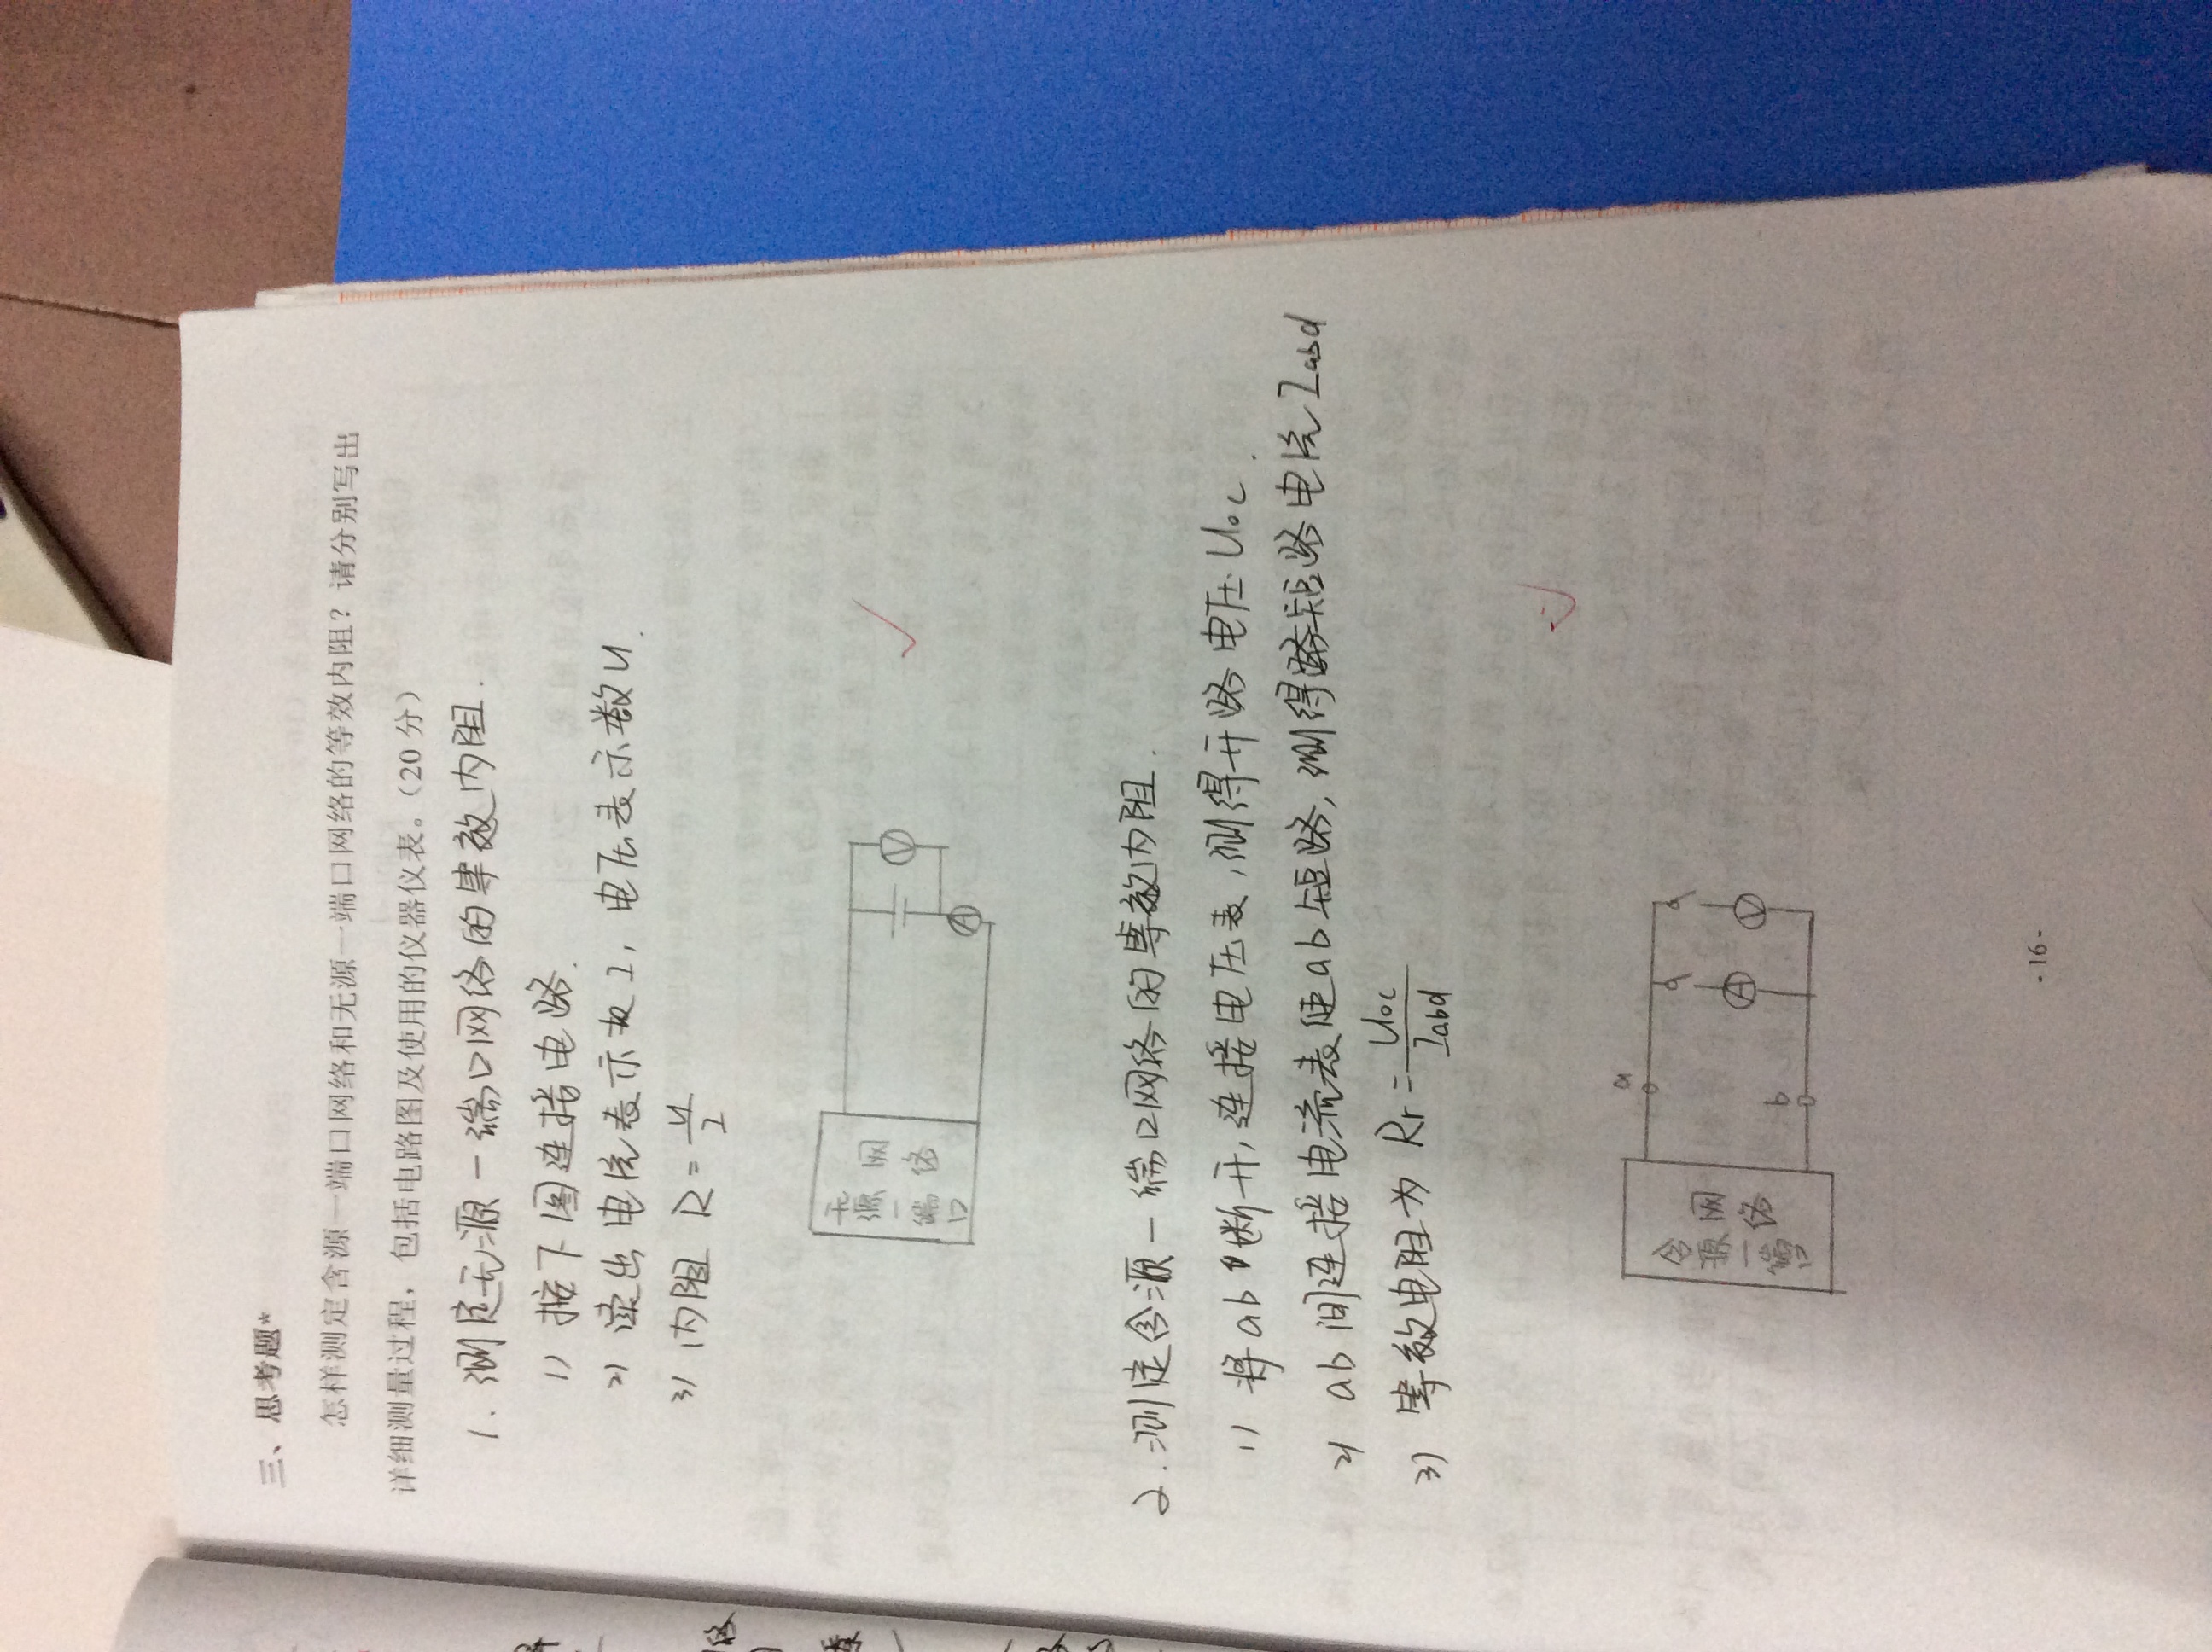 三、思考题*
怎样测定含源一端口网络和无源一端口网络的等效内阻？请分别写出
详细测量过程，包括电路图及使用的仪器仪表。（20分）
1. 测定无源一端口网络的等效内阻.
1) 按下图连接电路.
2) 读出电流表示数I, 电压表示数U.
3) 内阻 R = U/I
无源一端口
网络
A
V
2. 测定含源一端口网络的等效内阻.
1) 将ab断开, 连接电压表, 测得开路电压Uoc.
2) ab间连接电流表使ab短路, 测得短路电流Iabd
3) 等效电阻为 Rr = Uoc/Iabd
含源一端口
网络
a
b
A
V
- 16 -